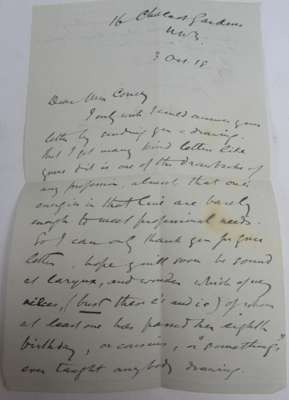 16 Chalcot Gardens
N.W.3.
3 Oct 18
Dear Miss Conely
I only wish I could answer your
letter by sending you a drawing.
but I get many kind letters like
yours & it is one of the drawbacks of
my profession, almost, that one's
energies in that line are barely
enough to meet professional needs.
So I can only thank you for your
letter, hope you'll soon be sound
at larynx, and wonder which of my
nieces, (but there is and is) of whom
at least one has passed her eighth
birthday, or cousins, or "somethings"
ever taught anybody drawing.